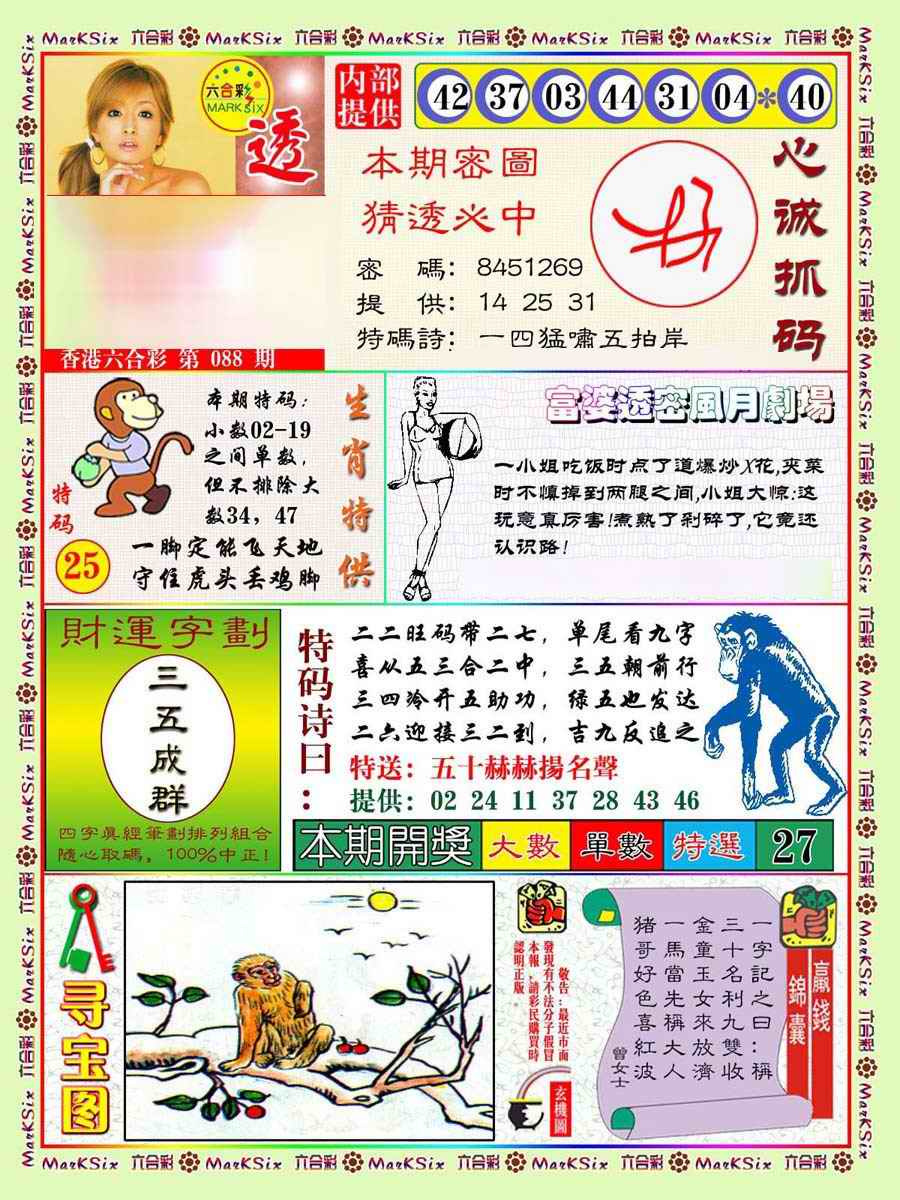 MarKSix 六合彩 MarKSix 六合彩 MarKSix 六合彩 MarKSix 六合彩 MarKSix 六合彩
六合彩
MARK SIX
透
内部
提供
42 37 03 44 31 04 * 40
本期密圖
猜透必中
密 碼：8451269
提 供：14 25 31
特碼詩：一四猛嘯五拍岸
心诚抓码
香港六合彩 第 088 期
本期特码：
小数02-19
之间单数，
但不排除大
数34，47
一脚定能飞天地
守住虎头丢鸡脚
特码
25
生肖特供
富婆透密風月劇場
一小姐吃饭时点了道爆炒X花,夹菜
时不慎掉到两腿之间,小姐大惊:这
玩意真厉害!煮熟了剁碎了,它竟还
认识路!
財運字劃
三五成群
四字眞經筆劃排列組合
隨心取碼，100%中正!
特码诗曰：
二二旺码带二七，单尾看九字
喜从五三合二中，三五朝前行
三四冷开五助功，绿五也发达
二六迎接三二到，吉九反追之
特送：五十赫赫揚名聲
提供：02 24 11 37 28 43 46
本期開獎 大數 單數 特選 27
寻宝图
敬告：最近市面
發現有不法分子假冒
本報，請彩民購買時
認明正版。
玄機圖
贏錢
錦囊
一字記之曰：稱
三十名利九雙收
金童玉女來放濟
一馬當先稱大人
猪哥好色喜紅波
曾女士
MarKSix 六合彩 MarKSix 六合彩 MarKSix 六合彩 MarKSix 六合彩 MarKSix 六合彩